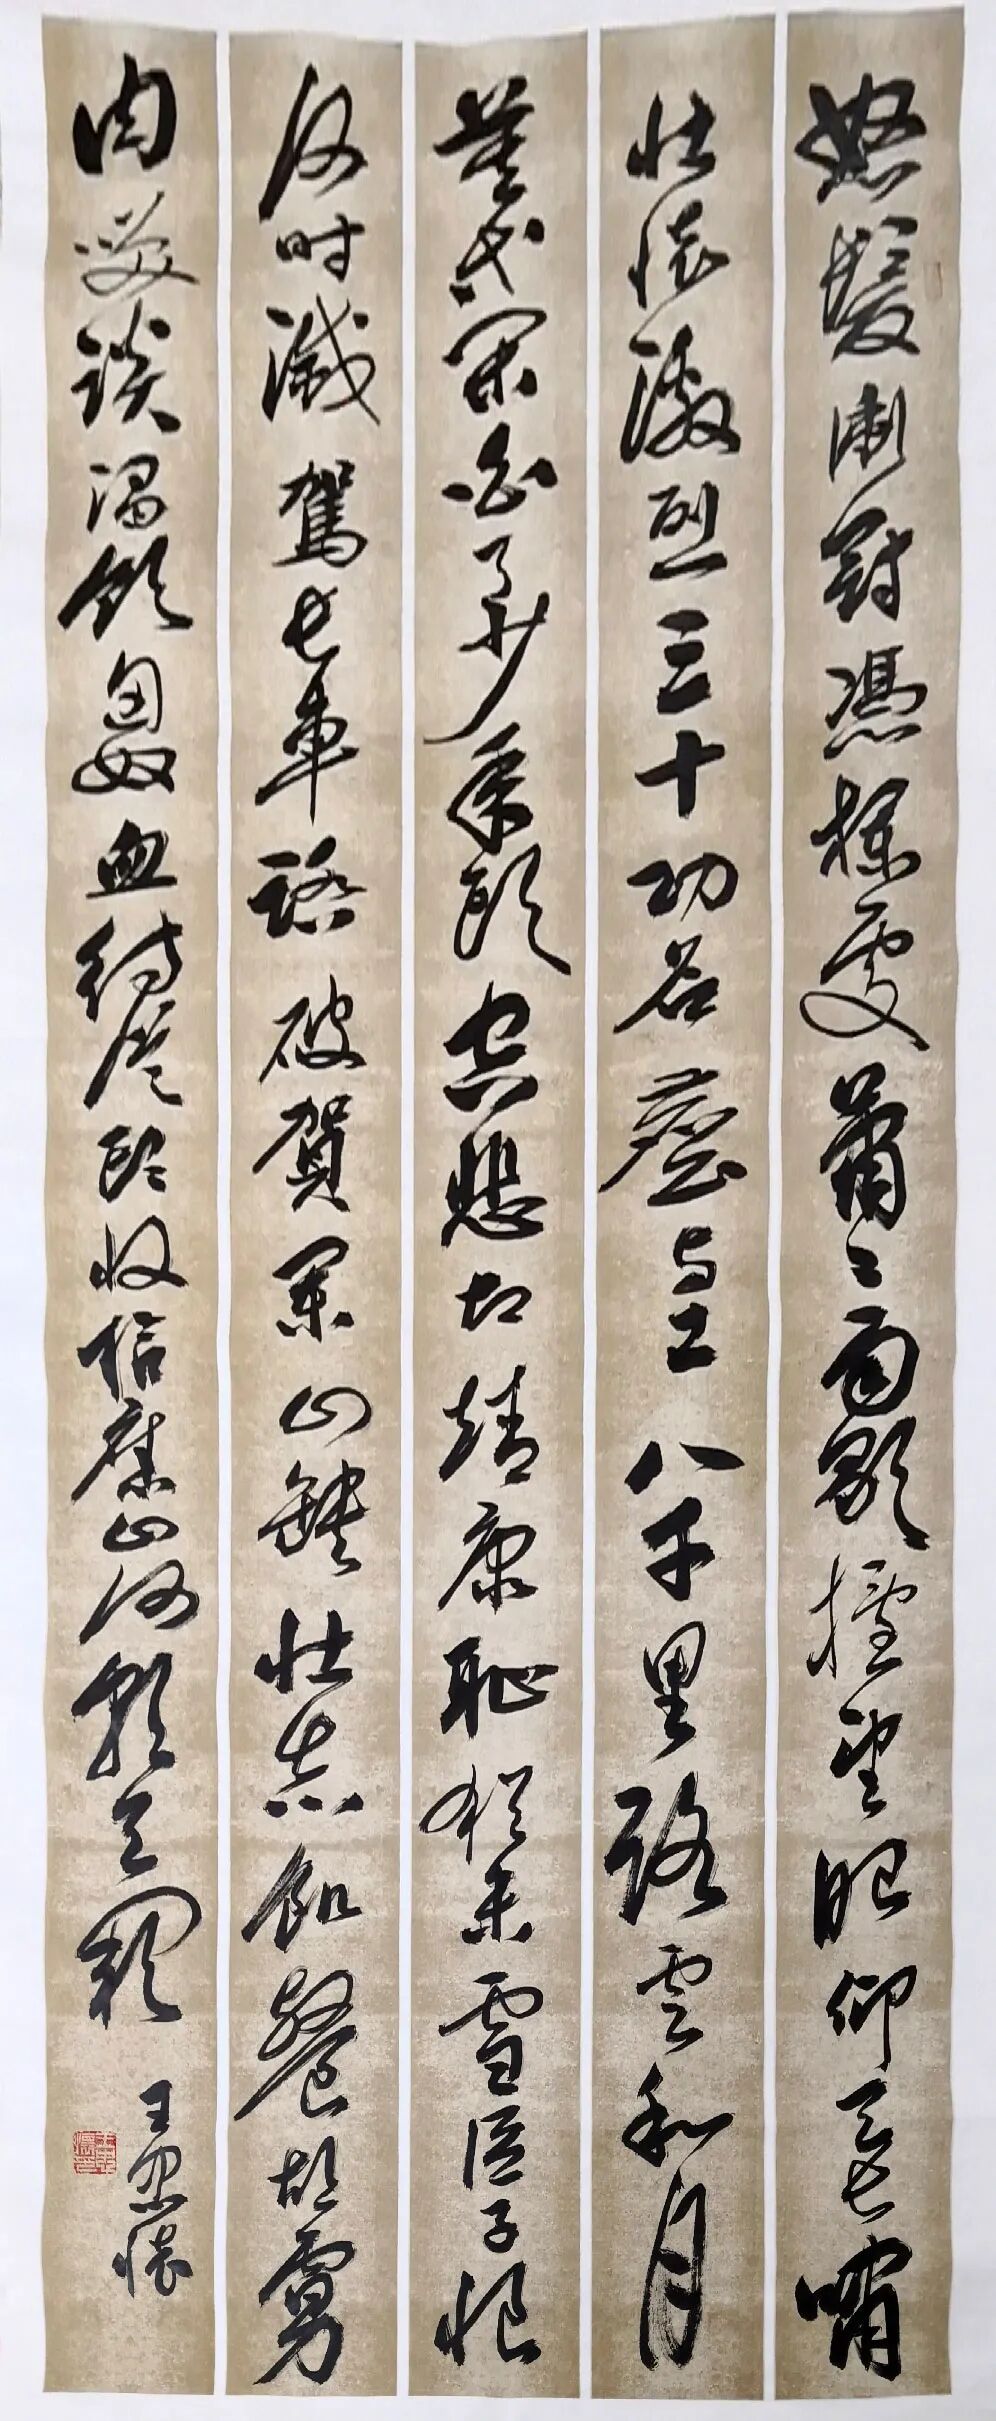 怒髮衝冠憑欄處蕭々雨歇擡望眼仰天長嘯
壯懷激烈三十功名塵與土八千里路雲和月
莫等閑白了少年頭空悲切靖康恥猶未雪臣子恨
何時滅駕長車踏破賀蘭山缺壯志飢餐胡虜
肉笑談渴飲匈奴血待從頭收拾舊山河朝天闕
王懷